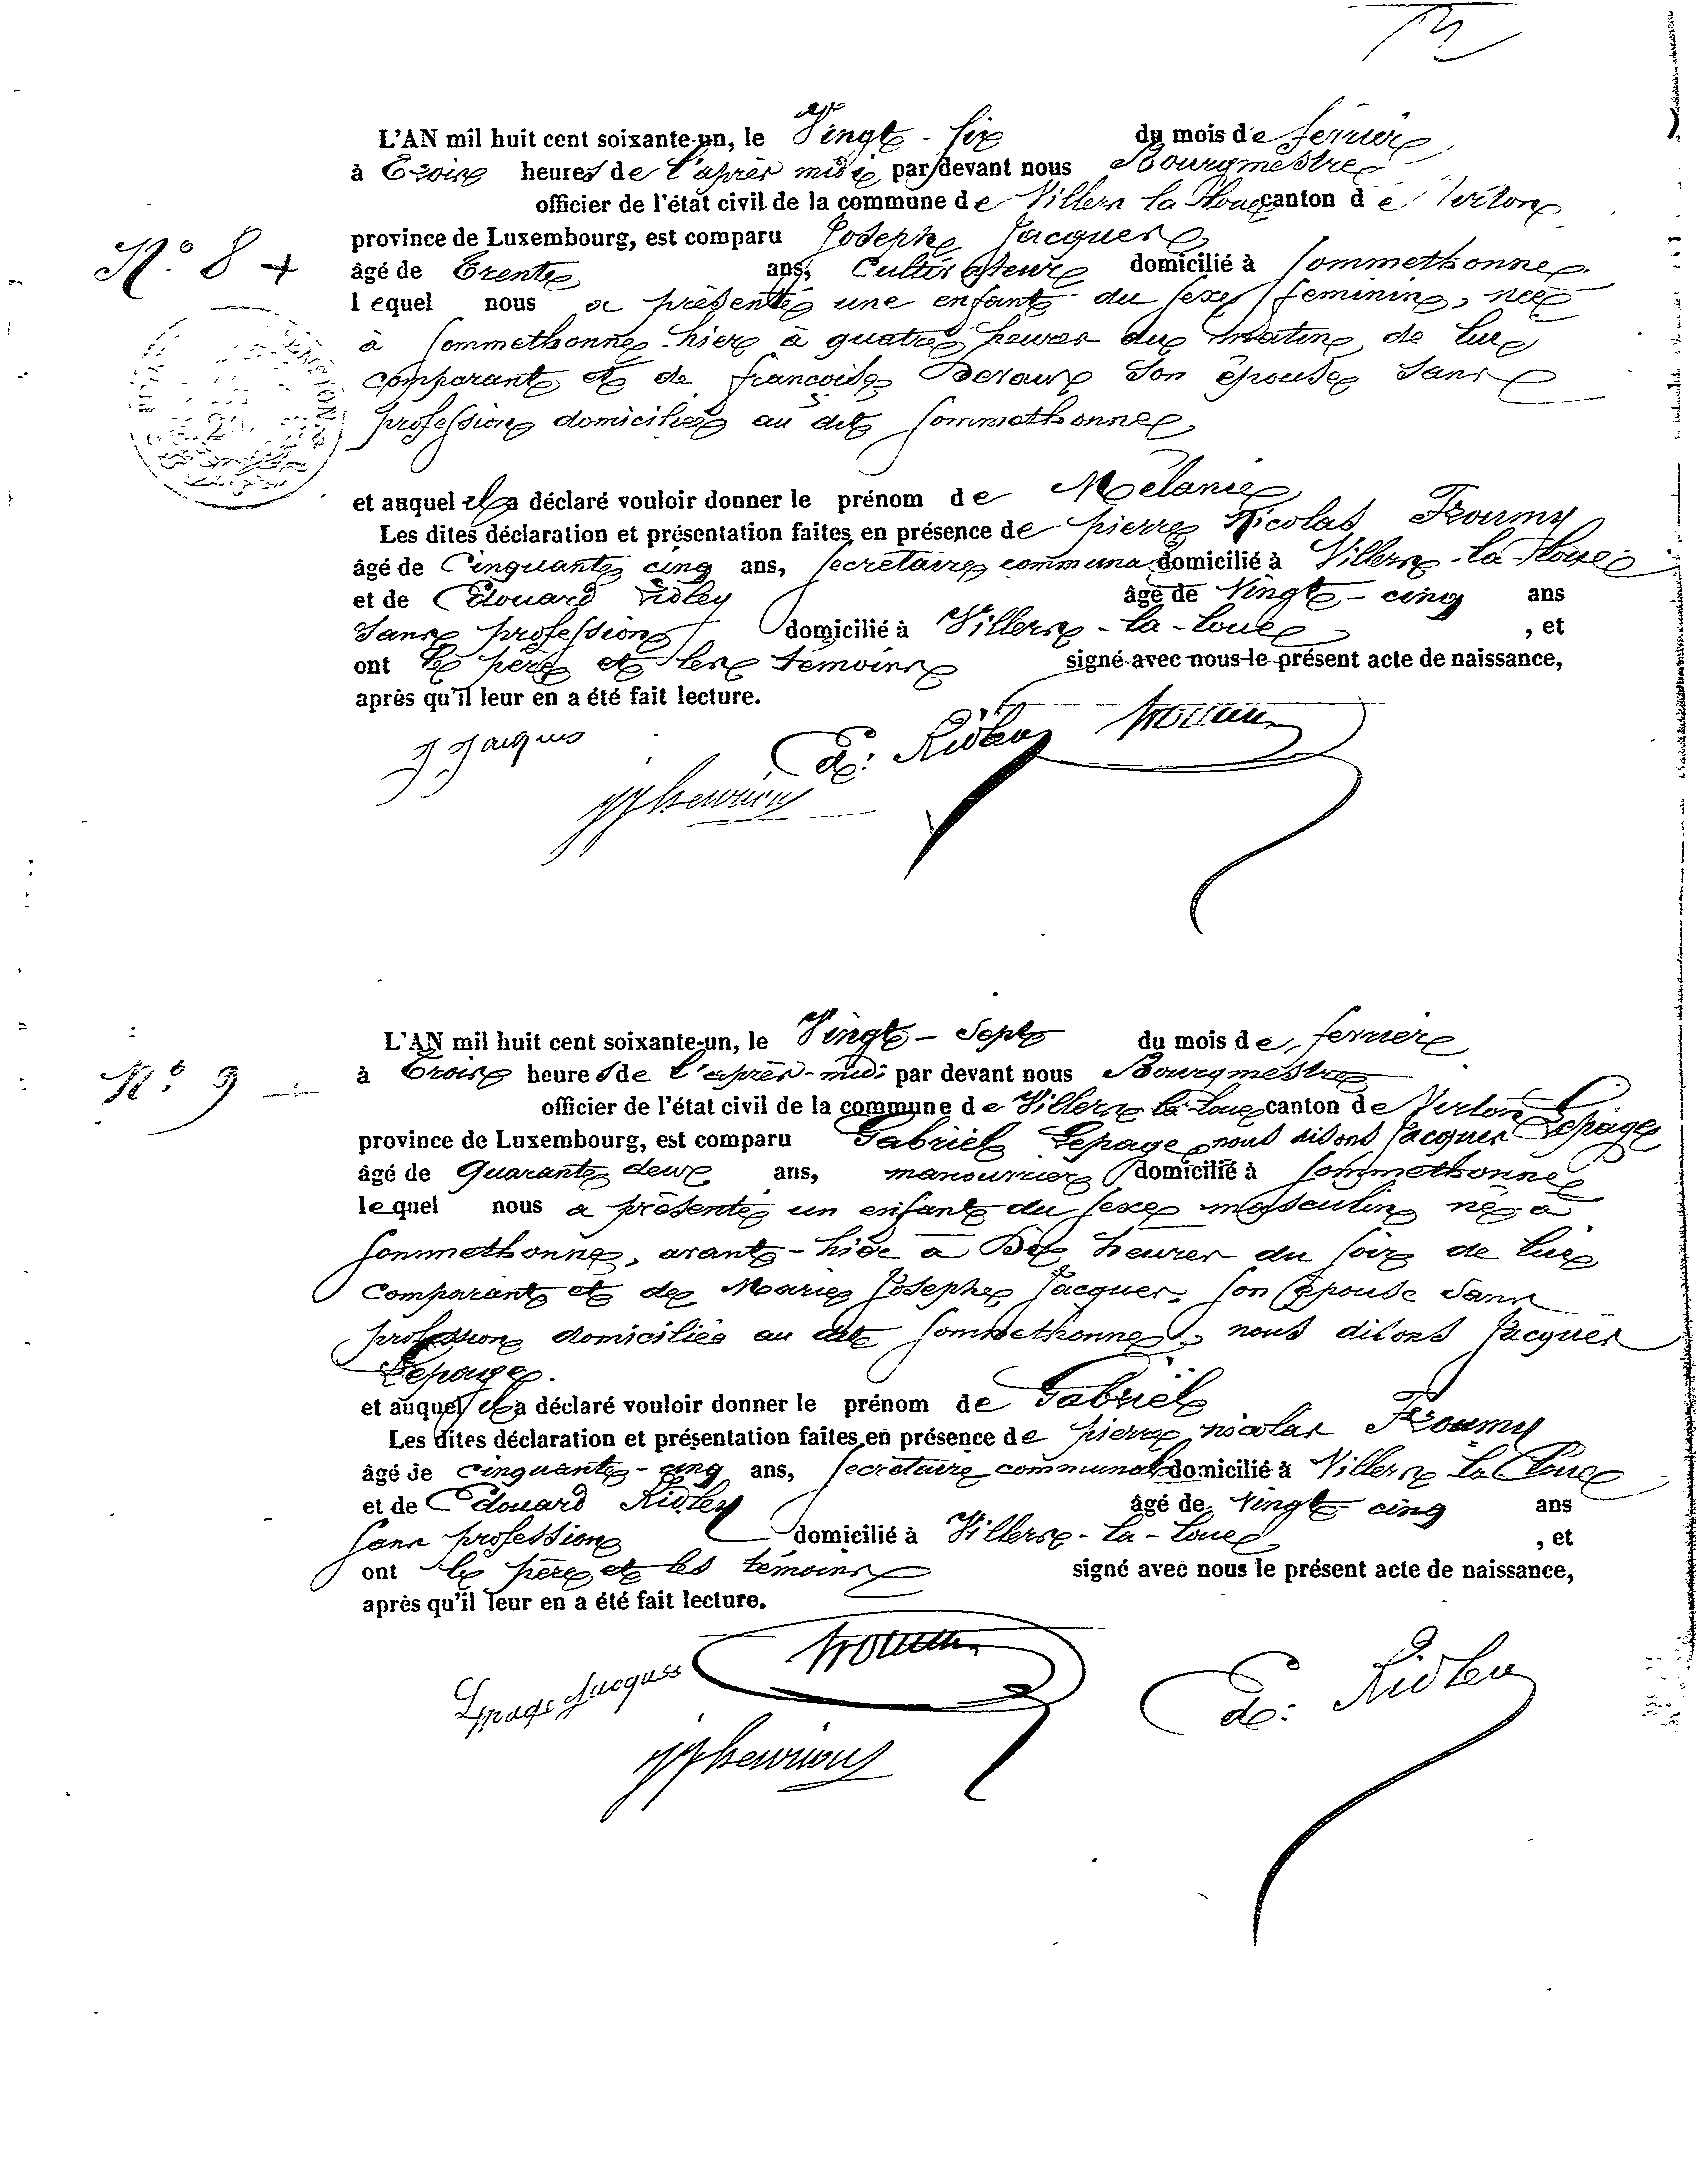 N.° 8
L'AN mil huit cent soixante-un, le Vingt-six du mois de février
à Trois heures de l'après midi par devant nous Bourgmestre
officier de l'état civil de la commune de Villers la Loue canton de Virton
province de Luxembourg, est comparu Joseph Jacques
âgé de trente ans, Cultivateur domicilié à Sommethonne
lequel nous a présenté une enfant du sexe feminin, née
à Sommethonne hier à quatre heures du matin, de lui
comparant et de françoise son épouse sans
profession domiciliée au dit Sommethonne
et auquel il a déclaré vouloir donner le prénom de Mélanie
Les dites déclaration et présentation faites en présence de pierre Nicolas Froumy
âgé de Cinquante cinq ans, secrétaire communal domicilié à Villers-la-Loue
et de Edouard Ridley âgé de Vingt-cinq ans
Sans profession domicilié à Villers-la-Loue , et
ont le père et les témoins signé avec nous le présent acte de naissance,
après qu'il leur en a été fait lecture.
J. Jacques
E: Ridley
N.° 9
L'AN mil huit cent soixante-un, le Vingt-Sept du mois de fevrier
à Trois heures de l'après-midi par devant nous Bourgmestre
officier de l'état civil de la commune de Villers la Loue canton de Virton
province de Luxembourg, est comparu Gabriel Lepage nous disons Jacques Lepage
âgé de Quarante deux ans, manouvrier domicilié à Sommethonne
lequel nous a présenté un enfant du sexe masculin né à
Sommethonne, avant-hier à Dix heures du soir de lui
Comparant et de Marie Josephe Jacques, son épouse sans
profession domiciliée au dit Sommethonne, nous disons Jacques
Lepage.
et auquel il a déclaré vouloir donner le prénom de Gabriel
Les dites déclaration et présentation faites en présence de pierre nicolas Froumy
âgé de cinquante-cinq ans, secrétaire communal domicilié à Villers la Loue
et de Edouard Ridley âgé de Vingt cinq ans
Sans profession domicilié à Villers-la-Loue , et
ont le père et les témoins signé avec nous le présent acte de naissance,
après qu'il leur en a été fait lecture.
Lepage Jacques
E: Ridley